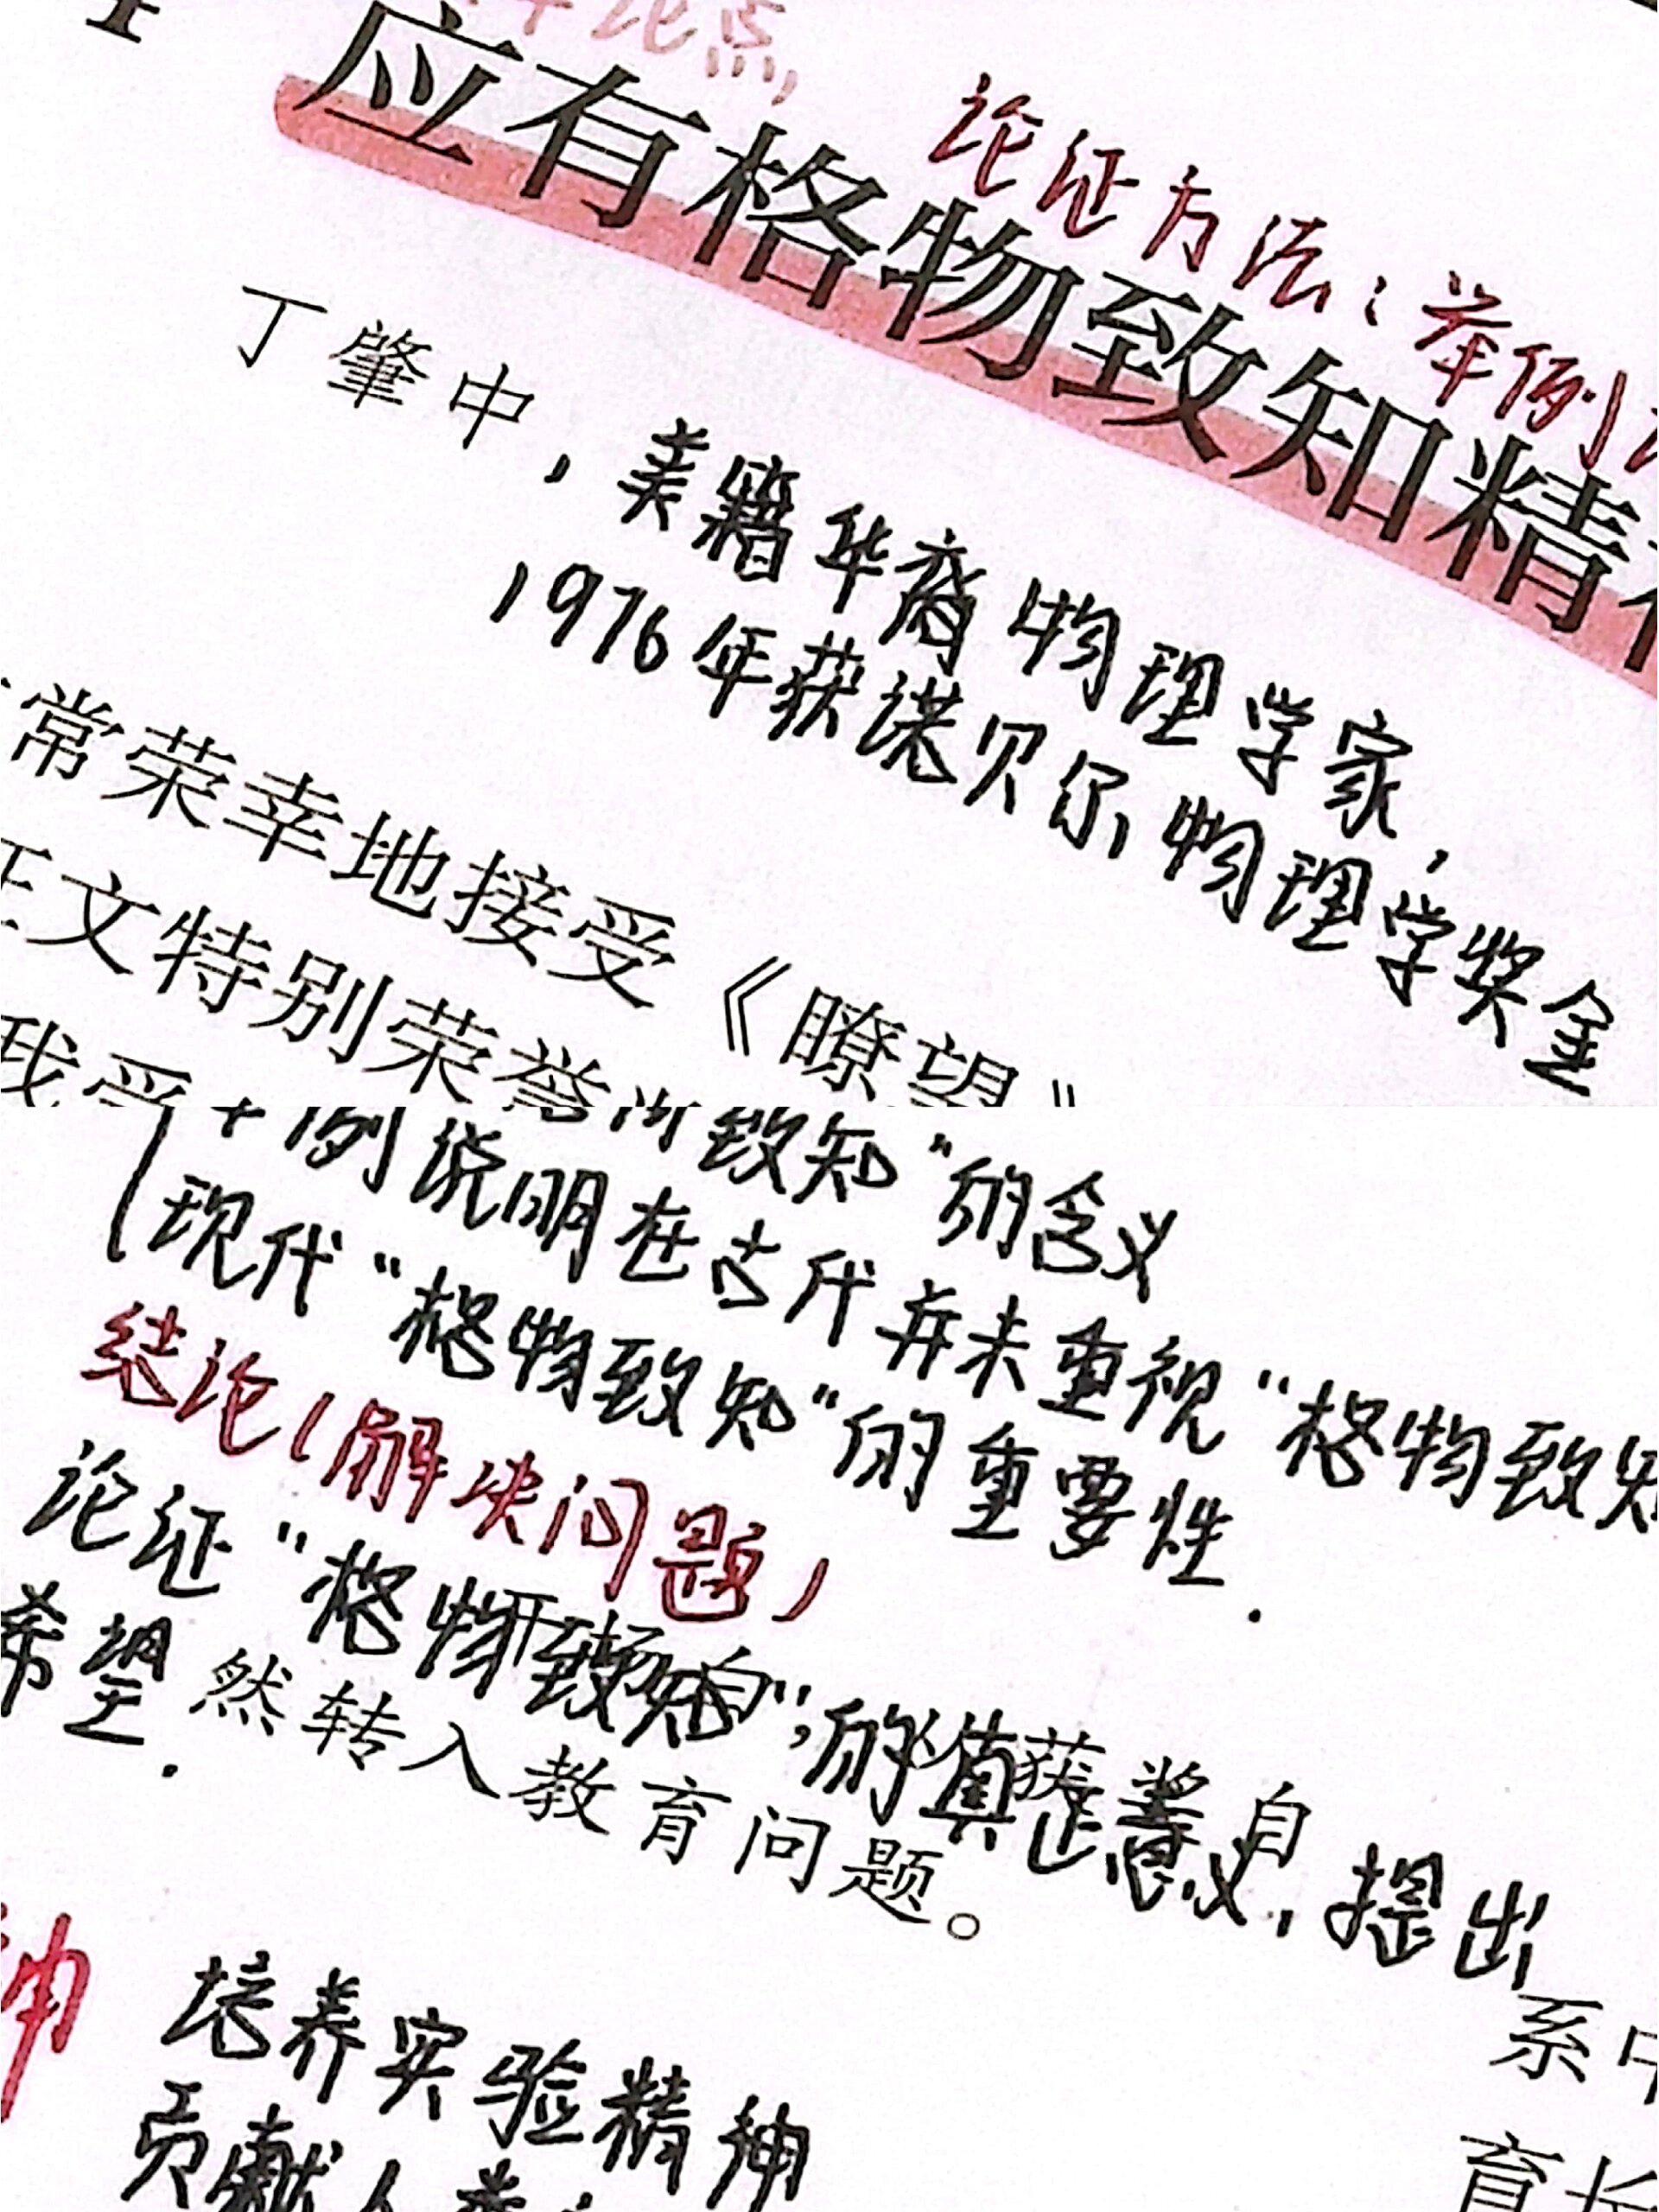 论点,
论证方法:举例
应有格物致知精
丁肇中,美籍华裔物理学家,
1976年获诺贝尔物理学奖金
常荣幸地接受《瞭望》
正文特别荣誉
我受
致知"的含义
例说明在古代并未重视"格物致知
现代"格物致知"的重要性.
结论(解决问题)
论证"格物致知"的真正意义,提出
希望.
获奖自
然转入教育问题。
系中
神 培养实验精神
育长
贡献人类